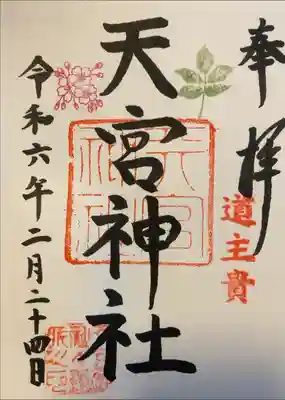 奉拝
道主貴
天宮神社
令和六年二月二十四日